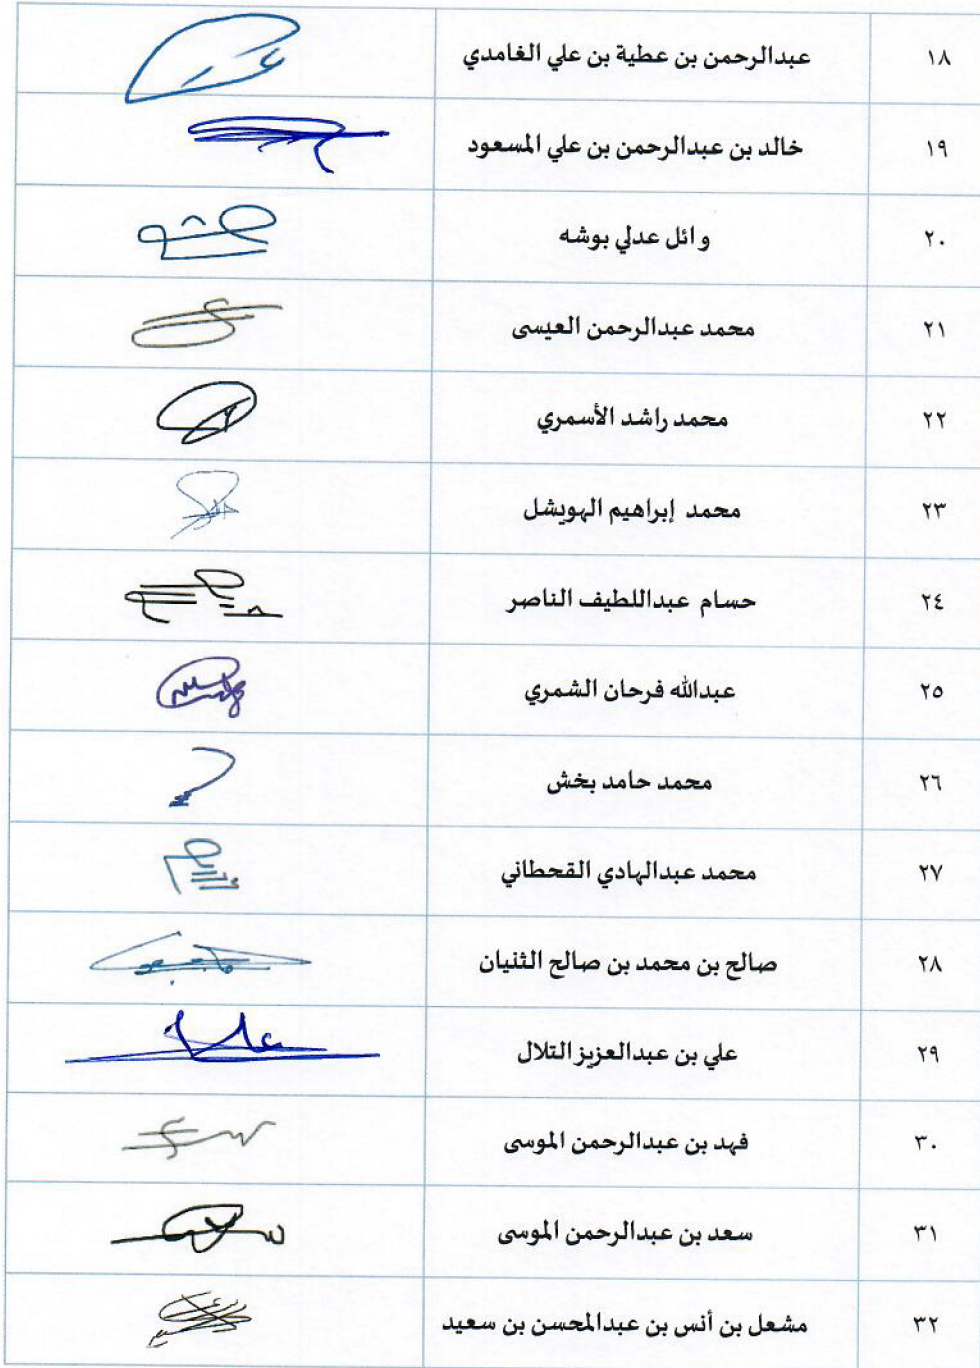 ١٨ عبدالرحمن بن عطية بن علي الغامدي
١٩ خالد بن عبدالرحمن بن علي المسعود
٢٠ وائل عدلي بوشه
٢١ محمد عبدالرحمن العيسى
٢٢ محمد راشد الأسمري
٢٣ محمد إبراهيم الهويشل
٢٤ حسام عبداللطيف الناصر
٢٥ عبدالله فرحان الشمري
٢٦ محمد حامد بخش
٢٧ محمد عبدالهادي القحطاني
٢٨ صالح بن محمد بن صالح الثنيان
٢٩ علي بن عبدالعزيز التلال
٣٠ فهد بن عبدالرحمن الموسى
٣١ سعد بن عبدالرحمن الموسى
٣٢ مشعل بن أنس بن عبدالمحسن بن سعيد